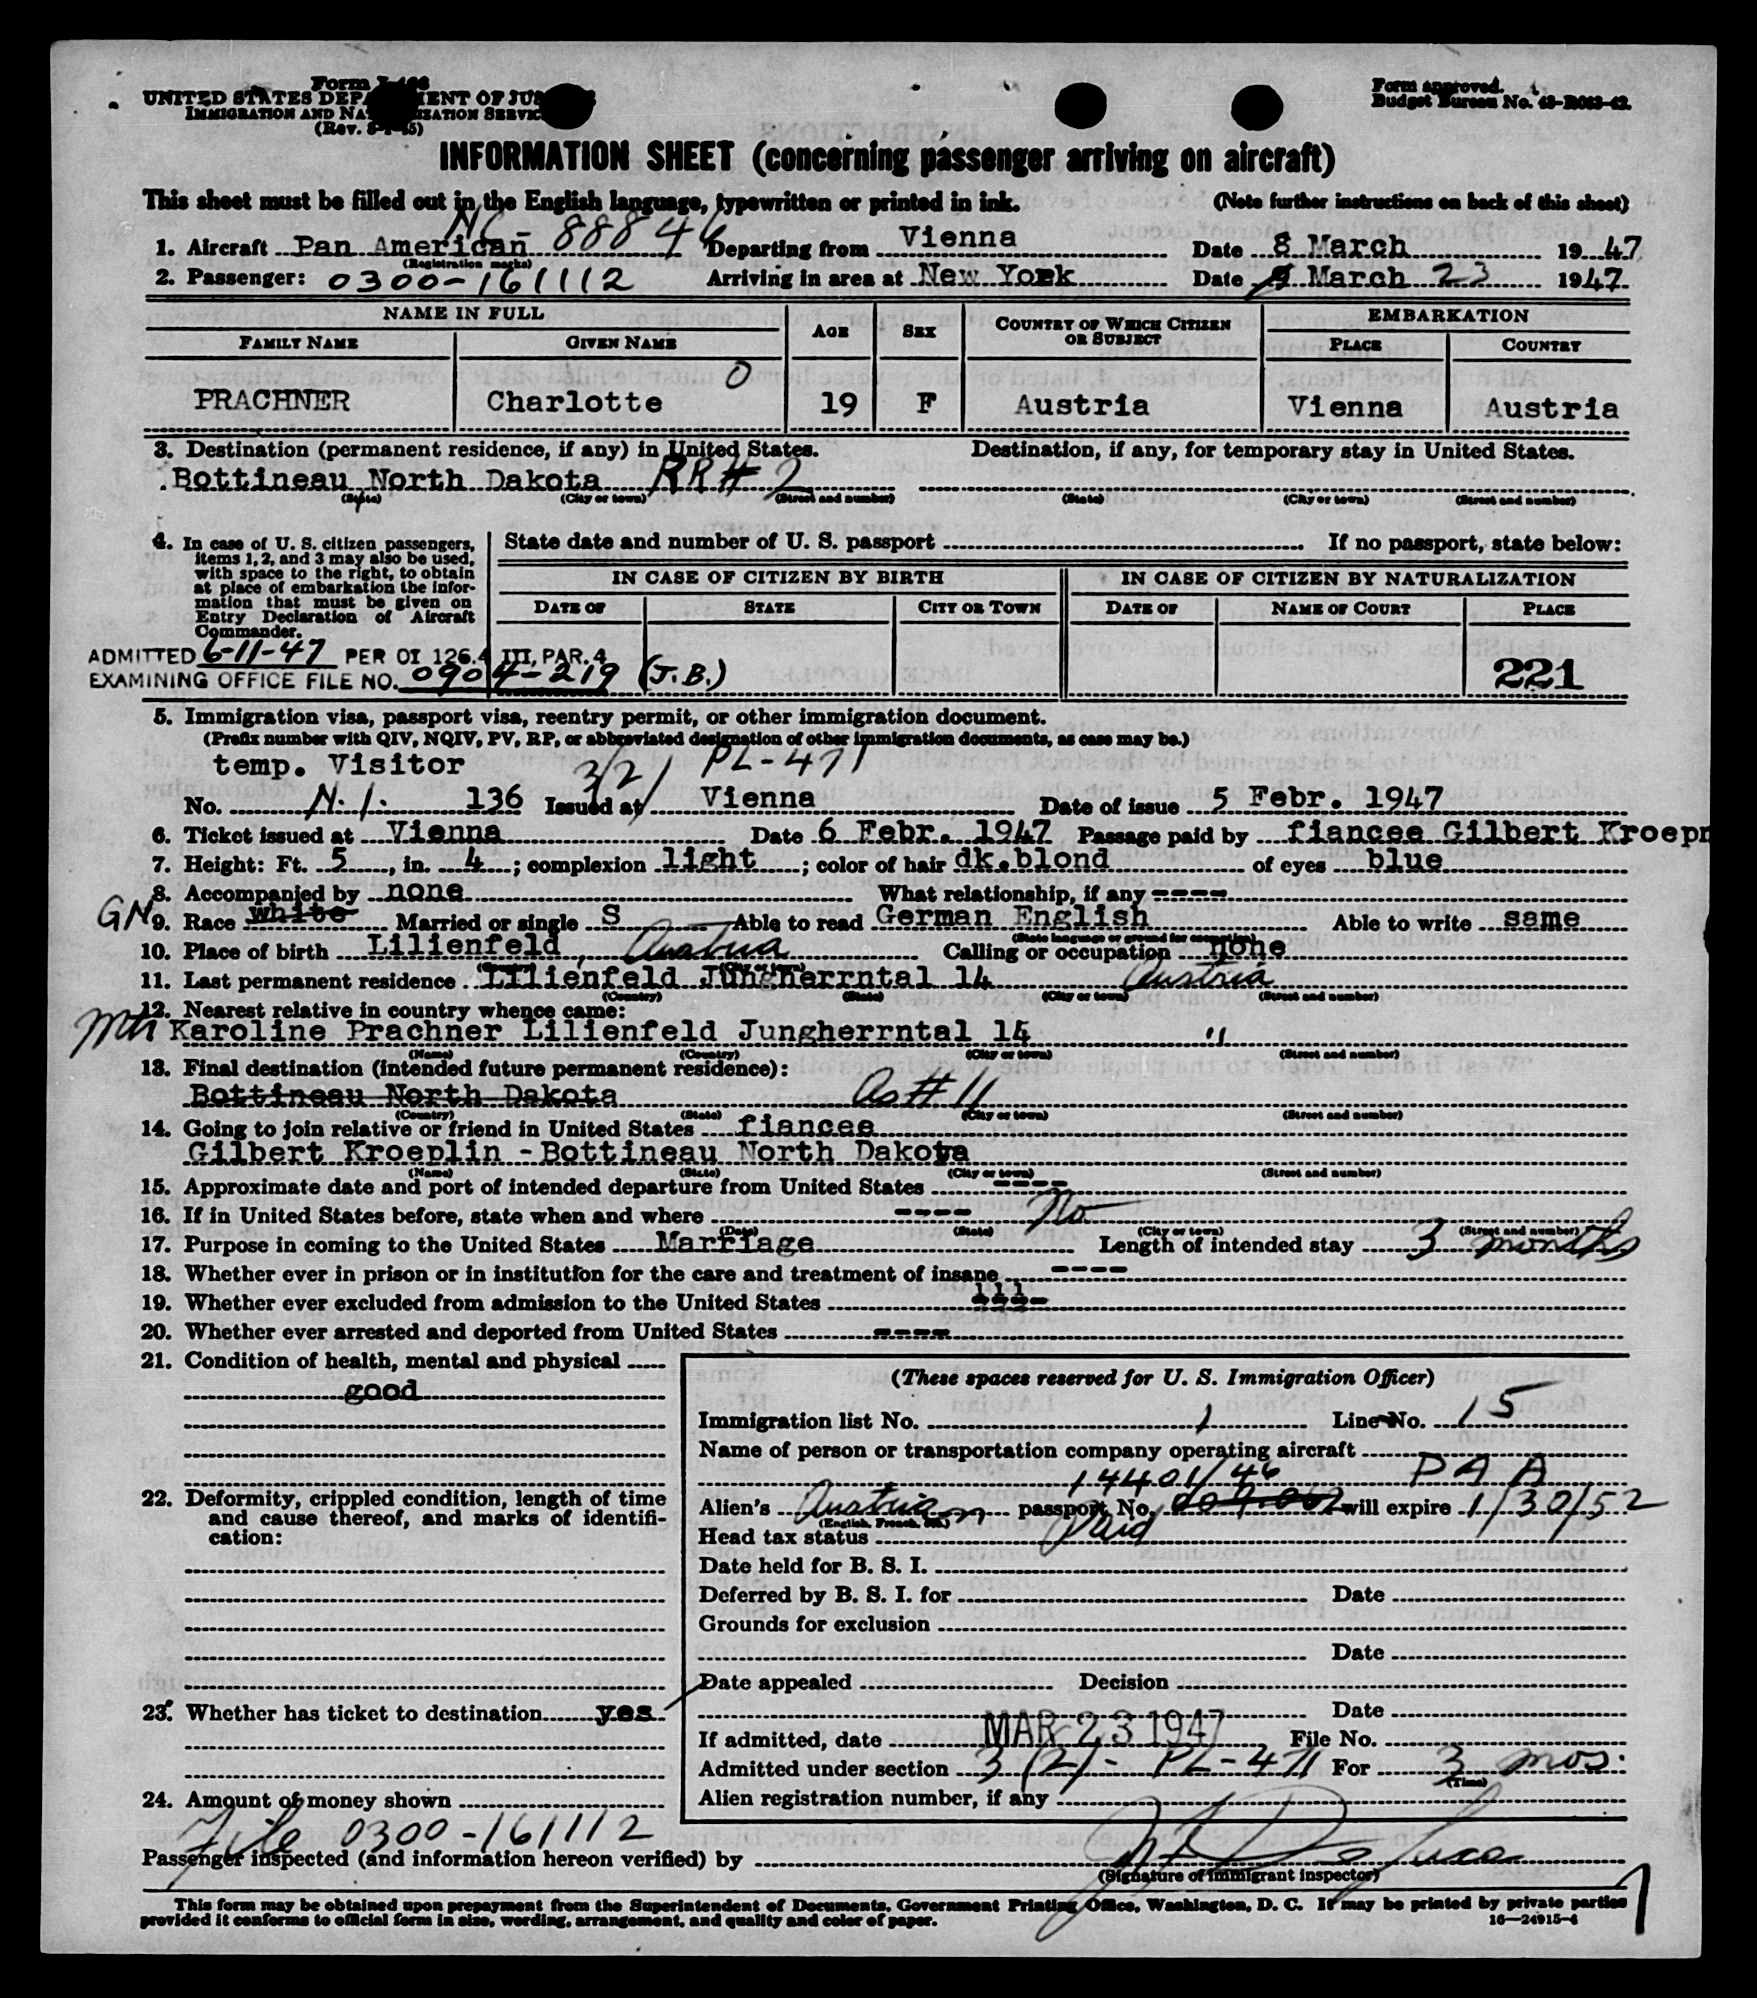 Form I-466
UNITED STATES DEPARTMENT OF JUSTICE
IMMIGRATION AND NATURALIZATION SERVICE
(Rev. 8-1-45)
Form approved.
Budget Bureau No. 43-R063-42.
INFORMATION SHEET (concerning passenger arriving on aircraft)
This sheet must be filled out in the English language, typewritten or printed in ink. (Note further instructions on back of this sheet)
NC-88846
1. Aircraft Pan American Departing from Vienna Date 8 March 1947
(Registration marks)
2. Passenger: 0300-161112 Arriving in area at New York Date 9 March 23 1947
NAME IN FULL AGE SEX COUNTRY OF WHICH CITIZEN OR SUBJECT EMBARKATION
FAMILY NAME GIVEN NAME PLACE COUNTRY
0
PRACHNER Charlotte 19 F Austria Vienna Austria
3. Destination (permanent residence, if any) in United States. Destination, if any, for temporary stay in United States.
Bottineau North Dakota RR#2
(State) (City or town) (Street and number) (State) (City or town) (Street and number)
4. In case of U. S. citizen passengers, items 1, 2, and 3 may also be used, with space to the right, to obtain at place of embarkation the information that must be given on Entry Declaration of Aircraft Commander.
State date and number of U. S. passport If no passport, state below:
IN CASE OF CITIZEN BY BIRTH IN CASE OF CITIZEN BY NATURALIZATION
DATE OF STATE CITY OR TOWN DATE OF NAME OF COURT PLACE
ADMITTED 6-11-47 PER OI 126.4 III, PAR. 4
EXAMINING OFFICE FILE NO. 0904-219 (J.B.)
221
5. Immigration visa, passport visa, reentry permit, or other immigration document.
(Prefix number with QIV, NQIV, PV, RP, or abbreviated designation of other immigration documents, as case may be.)
temp. Visitor 3/2/ PL-471
No. N.I. 136 Issued at Vienna Date of issue 5 Febr. 1947
6. Ticket issued at Vienna Date 6 Febr. 1947 Passage paid by fiancee Gilbert Kroepn
7. Height: Ft. 5, in. 4; complexion light; color of hair dk.blond of eyes blue
8. Accompanied by none What relationship, if any ----
GN 9. Race white Married or single S Able to read German English Able to write same
(State language or ground for exemption)
10. Place of birth Lilienfeld, Austria Calling or occupation none
(Country) (City or town)
11. Last permanent residence Lilienfeld Jungherrntal 14 Austria
(Country) (State) (City or town) (Street and number)
12. Nearest relative in country whence came:
Mth Karoline Prachner Lilienfeld Jungherrntal 14 "
(Name) (Country) (City or town) (Street and number)
13. Final destination (intended future permanent residence):
Bottineau North Dakota As # 11
(Country) (State) (City or town) (Street and number)
14. Going to join relative or friend in United States fiancee
Gilbert Kroeplin - Bottineau North Dakota
(Name) (State) (City or town) (Street and number)
15. Approximate date and port of intended departure from United States ----
16. If in United States before, state when and where ---- No
(Date) (State) (City or town) (Street and number)
17. Purpose in coming to the United States Marriage Length of intended stay 3 months
18. Whether ever in prison or in institution for the care and treatment of insane ----
19. Whether ever excluded from admission to the United States ----
20. Whether ever arrested and deported from United States ----
21. Condition of health, mental and physical
good
22. Deformity, crippled condition, length of time and cause thereof, and marks of identification:
23. Whether has ticket to destination yes
24. Amount of money shown
(These spaces reserved for U. S. Immigration Officer)
Immigration list No. 1 Line No. 15
Name of person or transportation company operating aircraft
14401/46 PAA
Alien's Austrian passport No. will expire 1/30/52
(English, French, etc.)
Head tax status Paid
Date held for B. S. I.
Deferred by B. S. I. for Date
Grounds for exclusion
Date
Date appealed Decision
Date
If admitted, date MAR 23 1947 File No.
Admitted under section 3(2)- PL-471 For 3 mos.
(Time)
Alien registration number, if any
File 0300-161112
Passenger inspected (and information hereon verified) by
(Signature of immigrant inspector)
This form may be obtained upon prepayment from the Superintendent of Documents, Government Printing Office, Washington, D. C. It may be printed by private parties
provided it conforms to official form in size, wording, arrangement, and quality and color of paper.
16—24915-4